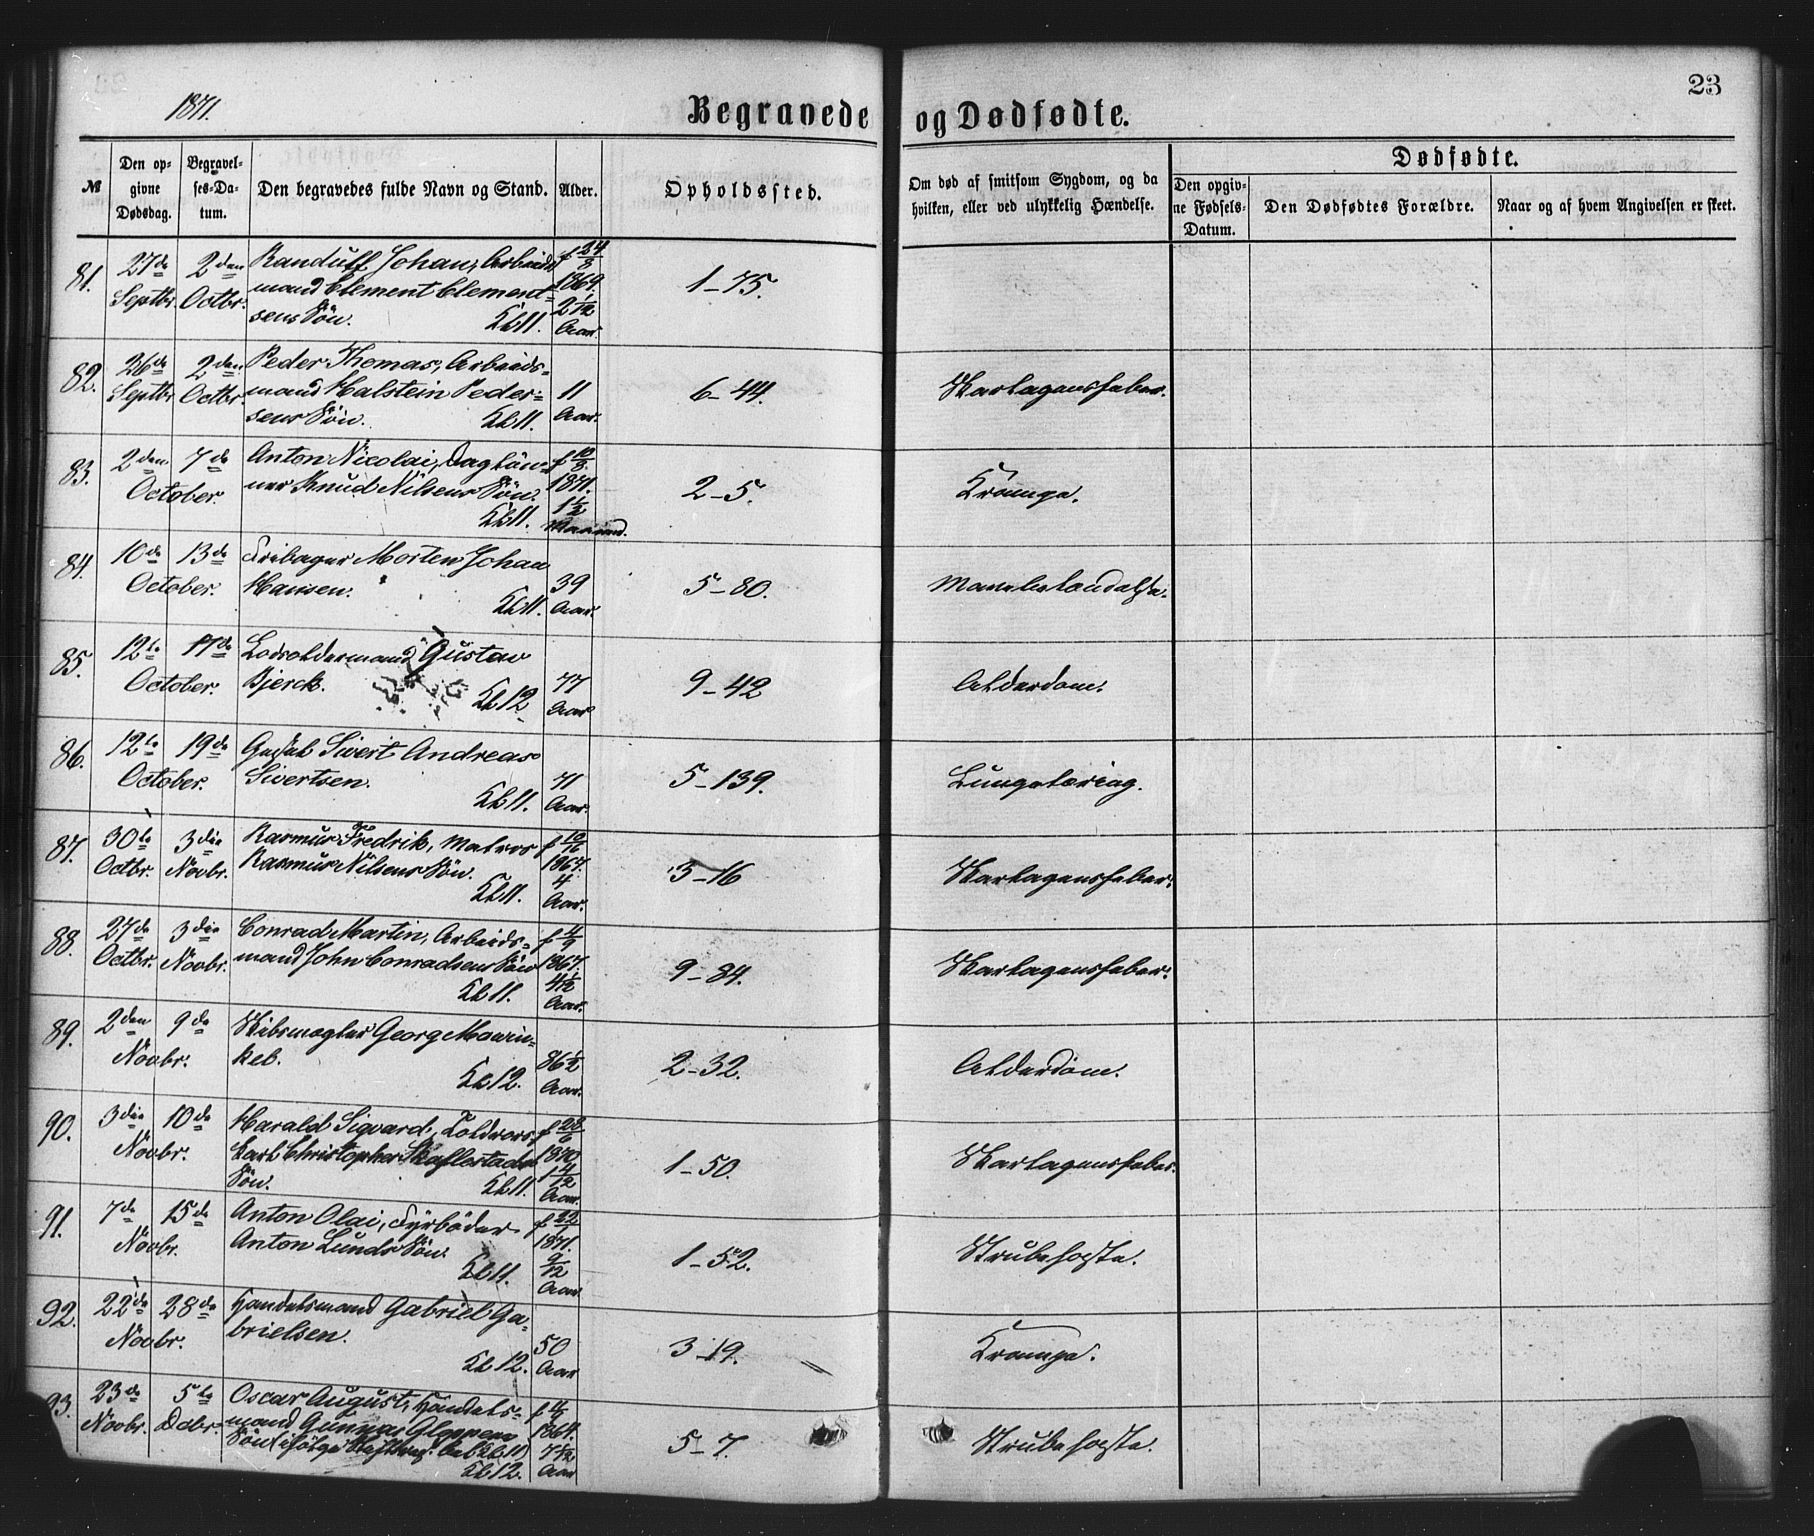 1871.
Begravede og Dødfødte.
23
№
Den opgivne Dødsdag.
Begravelses-Datum.
Den begravedes fulde Navn og Stand.
Alder.
Opholdssted.
Om død af smitsom Sygdom, og da hvilken, eller ved ulykkelig Hændelse.
Dødfødte.
Den opgivne Fødsels-Datum.
Den Dødfødtes Forældre.
Naar og af hvem Angivelsen er skeet.
81. 27de Septbr. 2den Octbr. Randulf Johan, Arbeids- f 24/8
mand Clement Clement- 1869. 1-75.
sens Søn. Kl 11. 2 1/12 Aar.
82. 26de Septbr 2den Octbr. Peder Thomas, Arbeids-
mand Halstein Peder- 11 6-44. Skarlagensfeber.
sens Søn. Kl 11. Aar.
83. 2den 7de October. Anton Nicolai, Dagløn- f 10/8
ner Knud Nilsens Søn. 1871. 2-5. Krampe.
Kl 11. 1 1/2 Maaned.
84. 10de 13de October. Fribager Morten Johan
Hansen. 39 5-80.
Kl 11. Aar.
85. 12te 17de October. Lodsoldermand Gustav
Bjerck. 77 9-42 Alderdom.
Kl 12. Aar
86. 12te 19de October. Sivert Andreas
Sivertsen. 71 5-139. Lungetæring.
Kl 11. Aar.
87. 30te Octbr. 3die Novbr. Rasmus Fredrik, Matros f
Rasmus Nilsens Søn. 1867. 3-16 Skarlagensfeber.
Kl 11. 4 Aar.
88. 27de Octbr. 3die Novbr. Conrad Martin, Arbeids- f 4/9
mand John Conradsens Søn 1867. 9-84. Skarlagensfeber.
Kl 11. Aar.
89. 2den 9de Novbr. Skibsmægler George Mowin-
kel. 86 1/2 2-32. Alderdom.
Kl 12. Aar.
90. 3die 10de Novbr. Harald Sigvard, Toldvors. f 28/6
Karl Christopher 1870 1-50. Skarlagensfeber.
Søn. Kl 11. 1 4/12 Aar.
91. 7de 15de Novbr. Anton Olai, Fyrbøder f 22/1
Anton Lunds Søn. 1871. 1-52. Strubehoste.
Kl 11. 9/12 Aar
92. 22de 28de Novbr. Handelsmand Gabriel Ga-
brielsen. 50 3-19. Krampe.
Kl 12. Aar
93. 23de Novbr. 5te Dcbr. Oscar August, Handels- f
mand Gunnar Gloppens 1864. 5-7. Strubehoste.
Søn
Kl 12. Aar